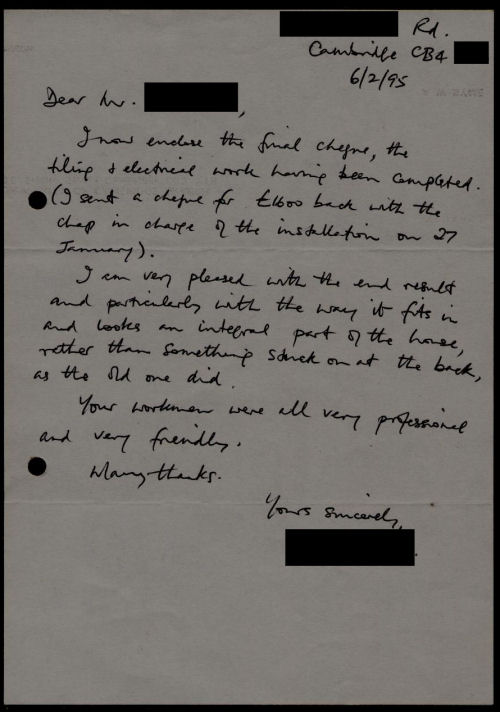 Rd.
Cambridge CB4
6/2/95
Dear Mr.
,
I now enclose the final cheque, the
tiling & electrical work having been completed.
(I sent a cheque for £1600 back with the
chap in charge of the installation on 27
January).
I am very pleased with the end result
and particularly with the way it fits in
and looks an integral part of the house,
rather than something stuck on at the back,
as the old one did.
Your workmen were all very professional
and very friendly.
Many thanks.
Yours sincerely,